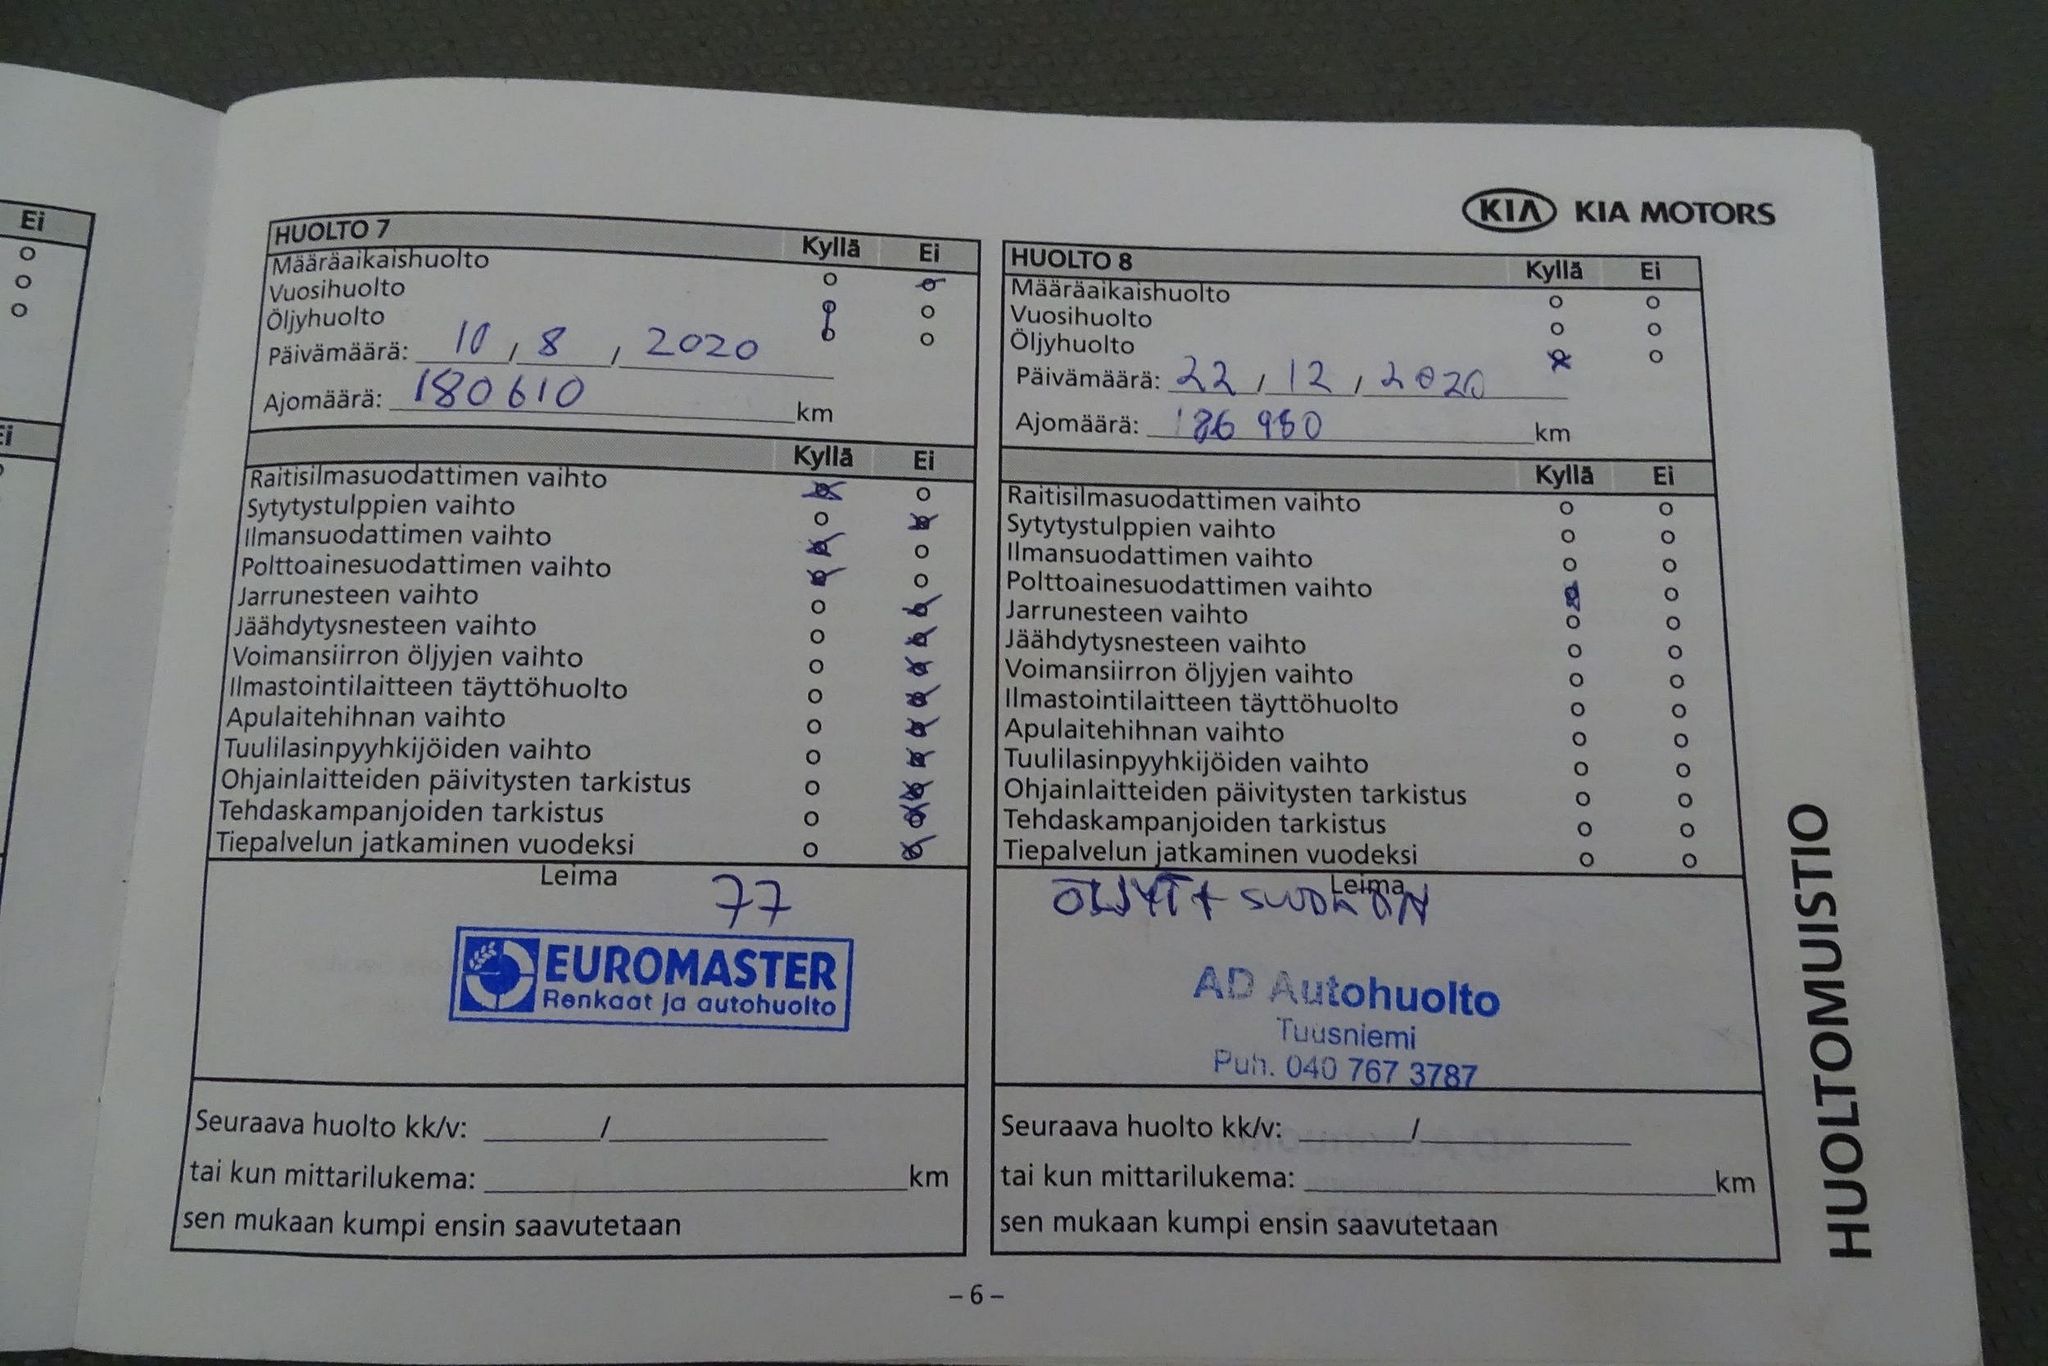 Ei
Ei
KIA KIA MOTORS
HUOLTO 7 Kyllä Ei
Määräaikaishuolto
Vuosihuolto
Öljyhuolto
Päivämäärä: 10 / 8 / 2020
Ajomäärä: 180610 km
Kyllä Ei
Raitisilmasuodattimen vaihto
Sytytystulppien vaihto
Ilmansuodattimen vaihto
Polttoainesuodattimen vaihto
Jarrunesteen vaihto
Jäähdytysnesteen vaihto
Voimansiirron öljyjen vaihto
Ilmastointilaitteen täyttöhuolto
Apulaitehihnan vaihto
Tuulilasinpyyhkijöiden vaihto
Ohjainlaitteiden päivitysten tarkistus
Tehdaskampanjoiden tarkistus
Tiepalvelun jatkaminen vuodeksi
Leima
77
EUROMASTER
Renkaat ja autohuolto
Seuraava huolto kk/v: /
tai kun mittarilukema: km
sen mukaan kumpi ensin saavutetaan
HUOLTO 8 Kyllä Ei
Määräaikaishuolto
Vuosihuolto
Öljyhuolto
Päivämäärä: 22 / 12 / 2020
Ajomäärä: 186 980 km
Kyllä Ei
Raitisilmasuodattimen vaihto
Sytytystulppien vaihto
Ilmansuodattimen vaihto
Polttoainesuodattimen vaihto
Jarrunesteen vaihto
Jäähdytysnesteen vaihto
Voimansiirron öljyjen vaihto
Ilmastointilaitteen täyttöhuolto
Apulaitehihnan vaihto
Tuulilasinpyyhkijöiden vaihto
Ohjainlaitteiden päivitysten tarkistus
Tehdaskampanjoiden tarkistus
Tiepalvelun jatkaminen vuodeksi
Leima
ÖLJYT +
AD Autohuolto
Tuusniemi
Puh. 040 767 3787
Seuraava huolto kk/v: /
tai kun mittarilukema: km
sen mukaan kumpi ensin saavutetaan
HUOLTOMUISTIO
– 6 –